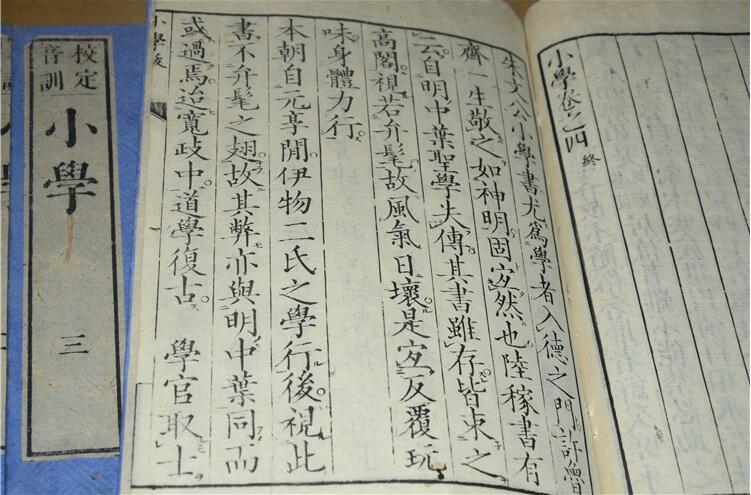 小學卷之四 終
朱文公小學書尤爲學者入德之門許魯
齊一生敬之如神明固宐然也陸稼書有
云自明中葉聖學失傳其書雖存皆束之
高閣視若弁髦故風氣日壞是宐反覆玩
味身體力行
本朝自元享閒伊物二氏之學行後視此
書不弁髦之翅故其弊亦與明中葉同而
或過焉迨寬政中道學復古 學官取士
小學跋
校定
音訓
小學
三